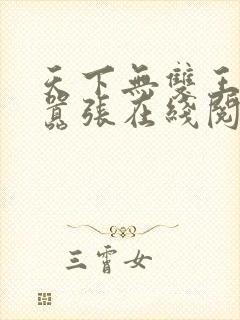 天下無雙王
囂張在綫閱
三霄女